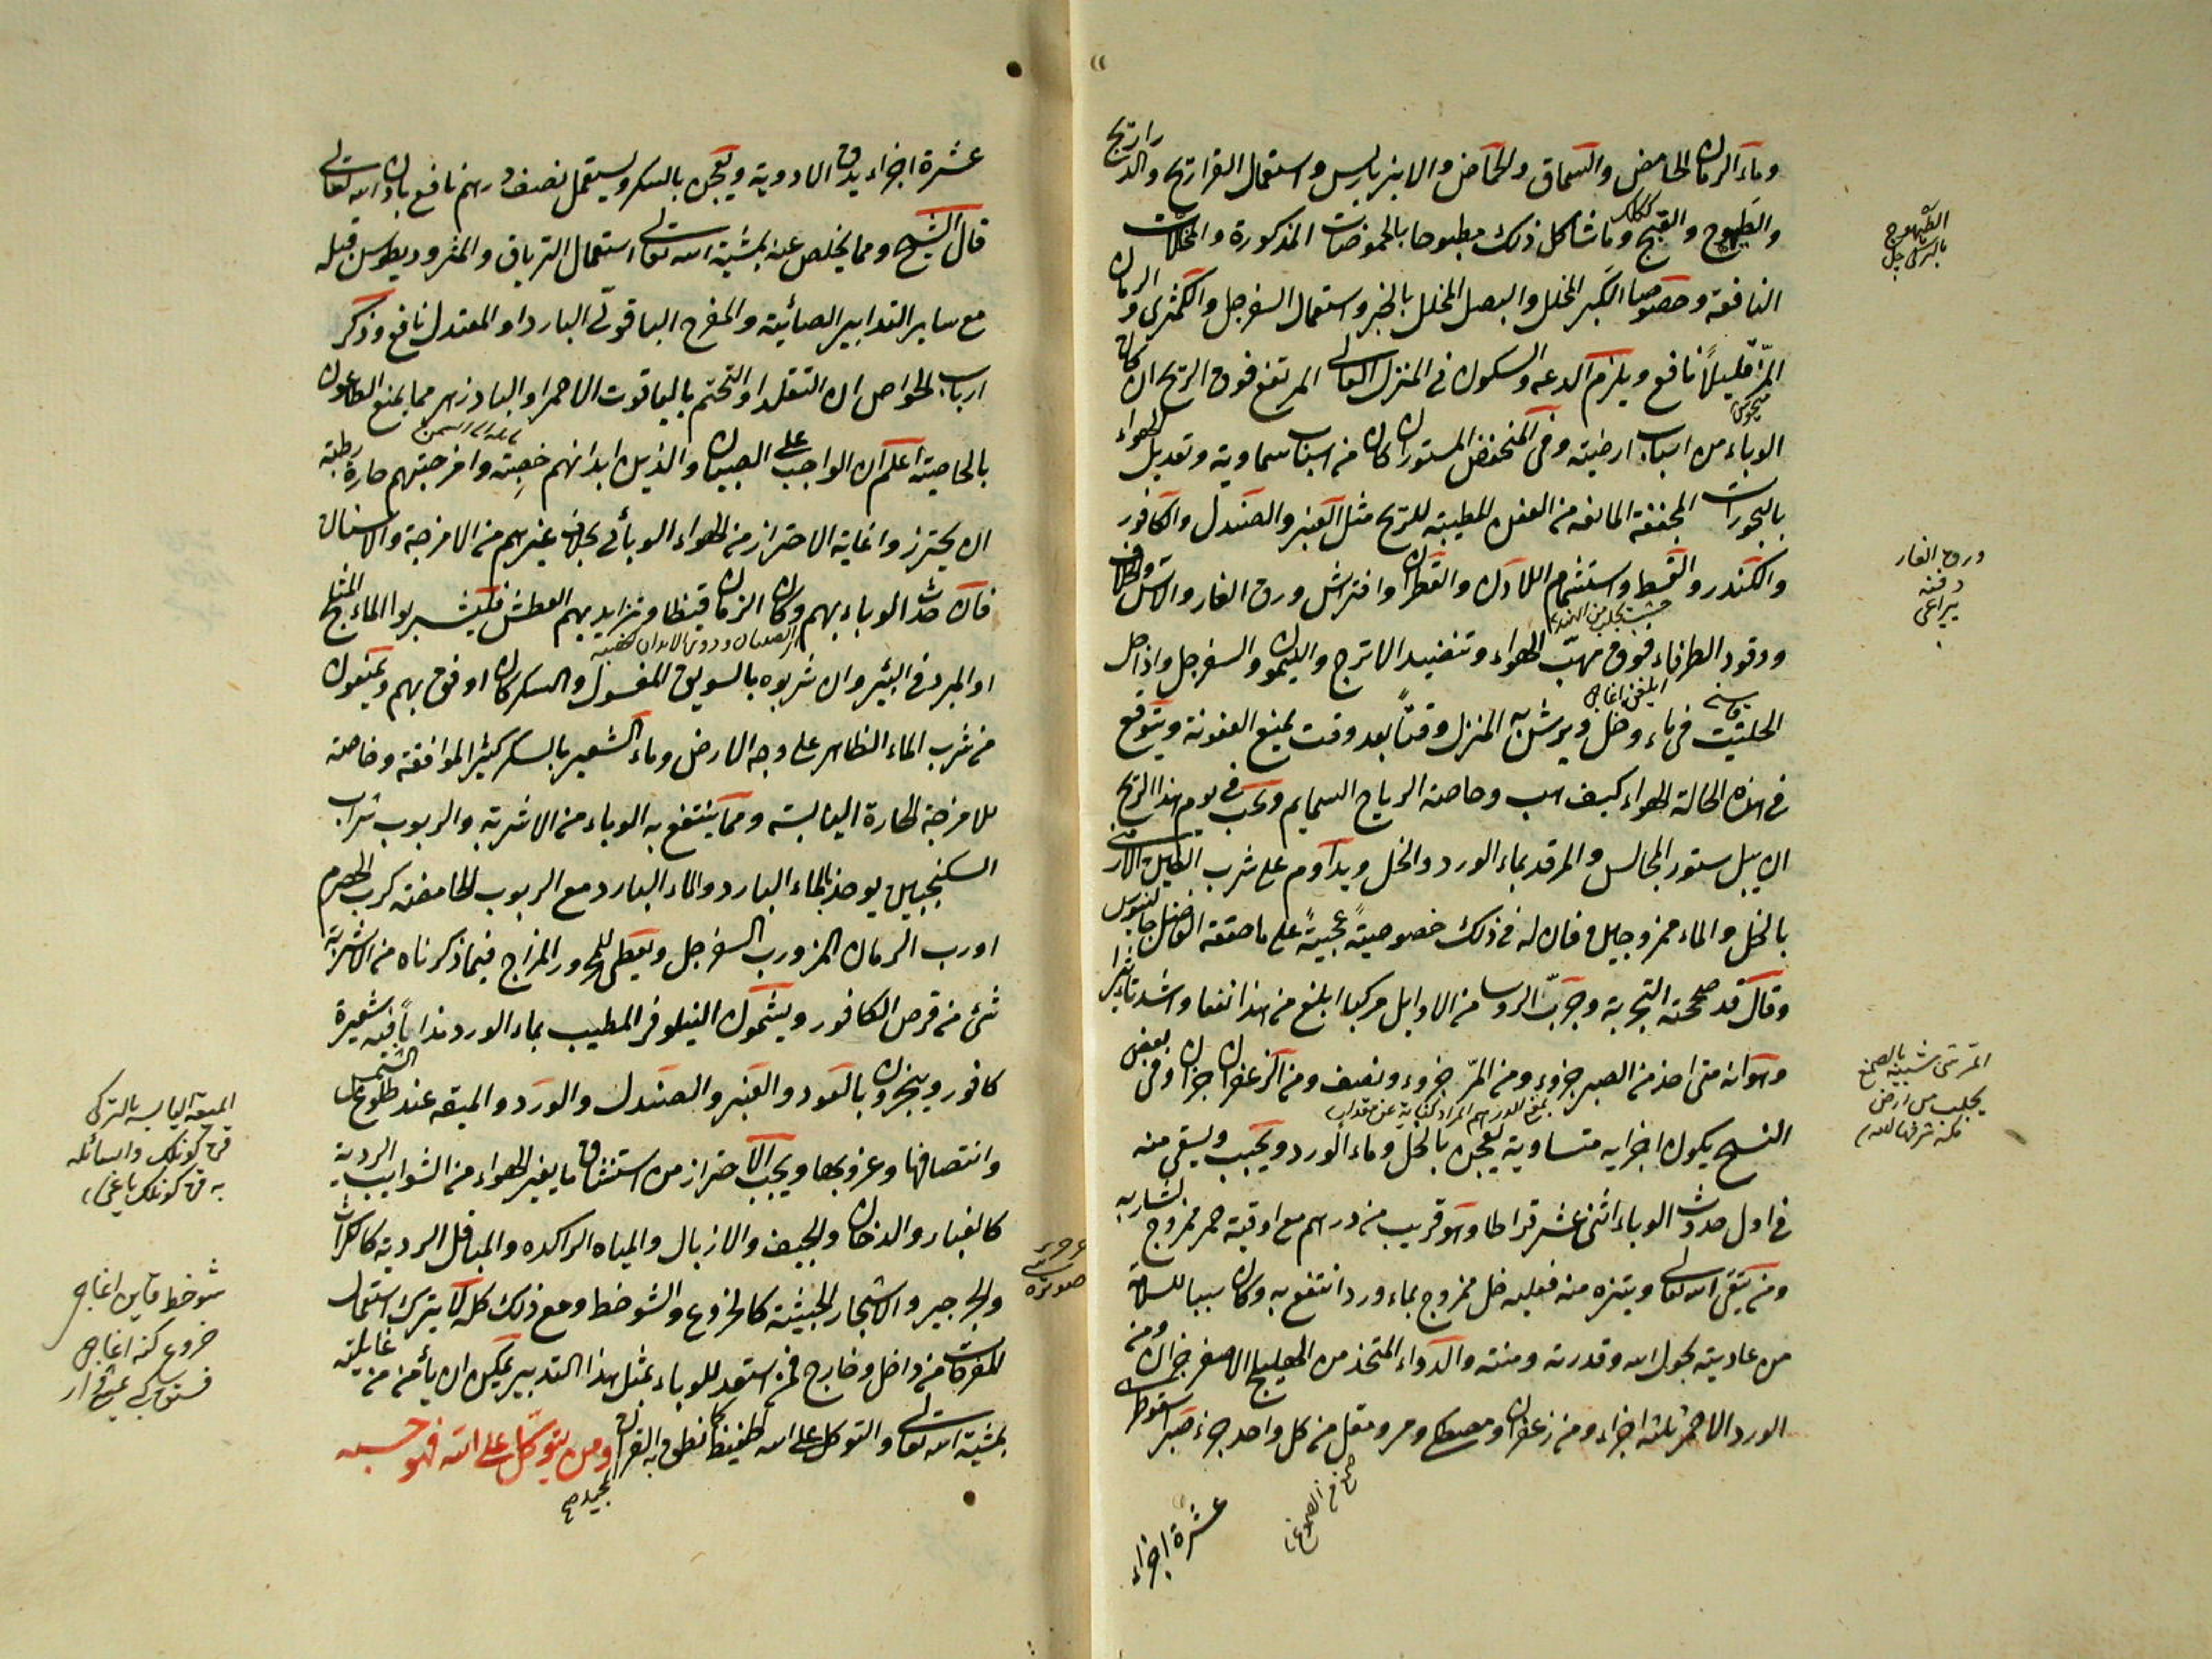 وماء الرمان الحامض والسماق والحماض والانبرباريس واستعمال الفراريج والدراريج
والطيهوج والقبج وما شاكل ذلك مطبوخا بالحموضات المذكورة والمخللات
النافعة وخصوصا الكبر المخلل والبصل المخلل بالخبز واستعمال السفرجل والكمثرى والرمان
المز قليلا نافع ويلزم الدعه والسكون فى المنزل العالى المرتفع فوق الريح ان كان
الوباء من اسباب ارضية وفى المنخفض المستور ان كان من اسباب سماوية وتعديل الهواء
بالبخورات المجففة المانعه من العفن المطيبة للريح مثل العنبر والصندل والكافور
والكندر والقسط واستشمام اللادن والقطران وافتراش ورق الغار والاثل والخلاف
ووقود الطرفاء فوق مهب الهواء وتنضيد الاترج والليمو والسفرجل واذا حل
الحلتيت فى ماء وخل ويرش به المنزل وقتا بعد وقت يمنع العفونة ويتوقع
فى هذه الحالة الهواء كيف هب وخاصة الرياح السمايم ويجب فى يوم هذا الريح
ان يبل ستور المجالس والمرقد بماء الورد والخل ويداوم على شرب الطين الارمنى
بالخل والماء ممزوجين فان له فى ذلك خصوصية عجيبة على ما حققه الفاضل جالينوس
وقال قد صححته التجربة وجرب الروسا من الاوايل مركبا ابلغ من هذا نفعا واشد تاثيرا
وهو انه متى اخذ من الصبر جزوء ومن المر جزوء ونصف ومن الزعفران جزان وفى بعض
النسخ يكون اجزايه متساوية يعجن بالخل وماء الورد ويحبب ويسقى منه
فى اول حدوث الوباء اثنى عشر قراطا وهو قريب من درهم مع اوقية خمر ممزوج لشاربه
ومن يتقى الله تعالى ويتنزه منه فعليه خل ممزوج بماء ورد انتفع به وكان سببا للسلامة
من عاديته بحول الله وقدرته ومنته والدواء المتخذ من الهليلج الاصفر جزان ومن
الورد الاحمر ثلثه اجزاء ومن زعفران ومصطكى ومر ومقل من كل واحد جزء صبر اسقوطرى
عشرة اجزاء
الطيهوج
بالتركى چيل
ورق الغار
دفنه
يپراغى
المر شئ شبيه بالصمغ
يجلب من ارض
مكه شرفها الله
عشرة اجزاء يدق الادوية ويعجن بالسكر ويستعمل نصف درهم نافع باذن الله تعالى
قال الشيخ ومما يخلص عنه بمشية الله تعالى استعمال الترياق والمثروديطوس قبله
مع ساير التدابير الصائبة والمفرح الياقوتى البارد او المعتدل نافع وذكر
ارباب الخواص ان التقلد او التختم بالياقوت الاحمر او البادزهر مما يمنع الطاعون
بالخاصية اعلم ان الواجب على الصبيان والذين ابدانهم خصبة وامزجتهم حارة رطبة
ان يحترزوا غاية الاحتراز من الهواء الوبائى بخلاف غيرهم من الامزجة والاسنان
فان حدث الوباء بهم وكان الزمان قيظا وتزايد بهم العطش فليشربوا الماء المثلج
او المبرد فى البئر وان شربوه بالسويق المغسول والسكر كان اوفق بهم ويمنعون
من شرب الماء الظاهر على وجه الارض وماء الشعير بالسكر كثير الموافقة وخاصة
للامزجة الحارة اليابسة ومما ينتفع به الوباء من الاشربة والربوب شراب
السكنجبين يوخذ بالماء البارد والماء البارد مع الربوب الحامضة كرب الحصرم
او رب الرمان المز ورب السفرجل ويعطى للمحرور المزاج فيما ذكرناه من الاشربة
شئ من قرص الكافور ويشمون النيلوفر المطيب بماء الورد مذابا فيه شعيرة
كافور ويبخرون بالعود والعنبر والصندل والورد والميعه عند طلوع الشمس
وانتصافها وغروبها ويجب الاحتراز من استنشاق ما يغير الهواء من الشوايب الردية
كالغبار والدخان والجيف والازبال والمياه الراكده والمباقل الردية كالكراث
والجرجير والاشجار الخبيثة كالخروع والشوخط ومع ذلك كله لا يترك استعمال
المفرحات من داخل وخارج فمن استعد للوباء بمثل هذا التدبير يمكن ان يأمن من غايلته
بمشية الله تعالى والتوكل على الله كما نطق به القران ومن يتوكل على الله فهو حسبه
المجيد صح
الميعة اليابسه بالتركى
قره كونلك والسائله
به قره كونلك ياغى
شوخط قاين اغاجى
خروع كنه اغاجى